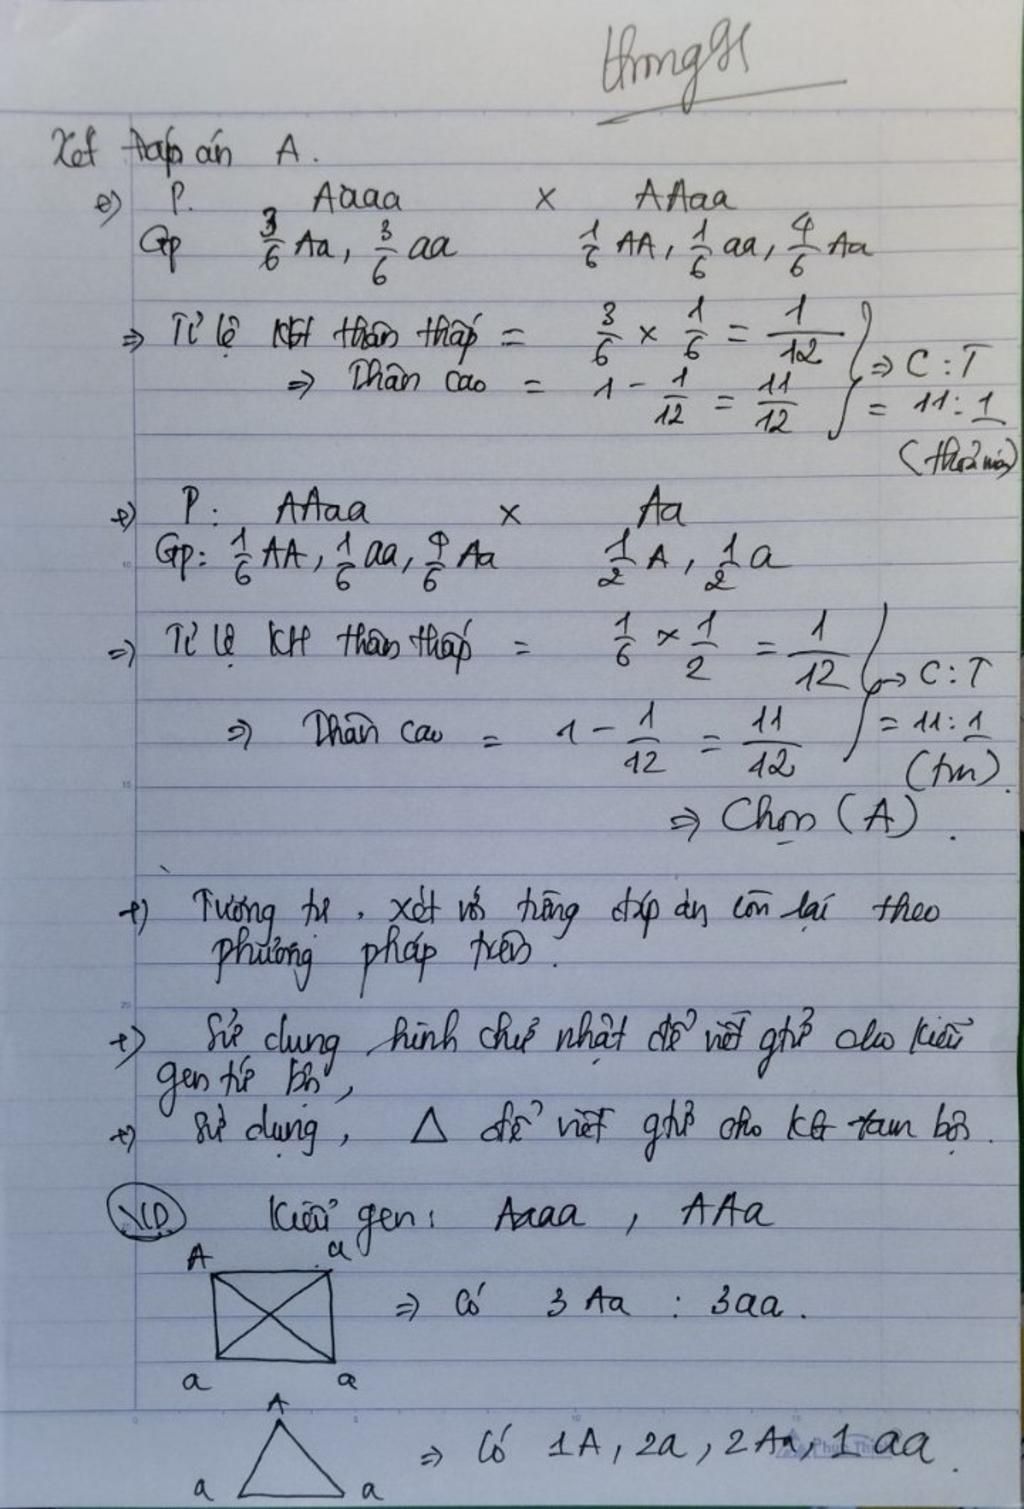 Xét đáp án A.
+) P. Aaaa × AAaa
Gp 3/6 Aa, 3/6 aa 1/6 AA, 1/6 aa, 4/6 Aa
⇒ Tỉ lệ KH thân thấp = 3/6 × 1/6 = 1/12
⇒ Thân cao = 1 - 1/12 = 11/12
⇒ C : T
= 11 : 1
(thoả mãn)
+) P: AAaa × Aa
Gp: 1/6 AA, 1/6 aa, 4/6 Aa 1/2 A, 1/2 a
⇒ Tỉ lệ KH thân thấp = 1/6 × 1/2 = 1/12
⇒ Thân cao = 1 - 1/12 = 11/12
→ C : T
= 11 : 1
(tm).
⇒ Chọn (A).
+) Tương tự, xét với từng đáp án còn lại theo
phương pháp trên.
+) Sử dụng hình chữ nhật để viết gtử cho kiểu
gen tứ bội,
+) Sử dụng, △ để viết gtử cho KG tam bội.
VD Kiểu gen: Aaaa, AAa
A a
⇒ Có 3 Aa : 3aa.
a a
A
⇒ Có 1A, 2a, 2Aa, 1 aa.
a a